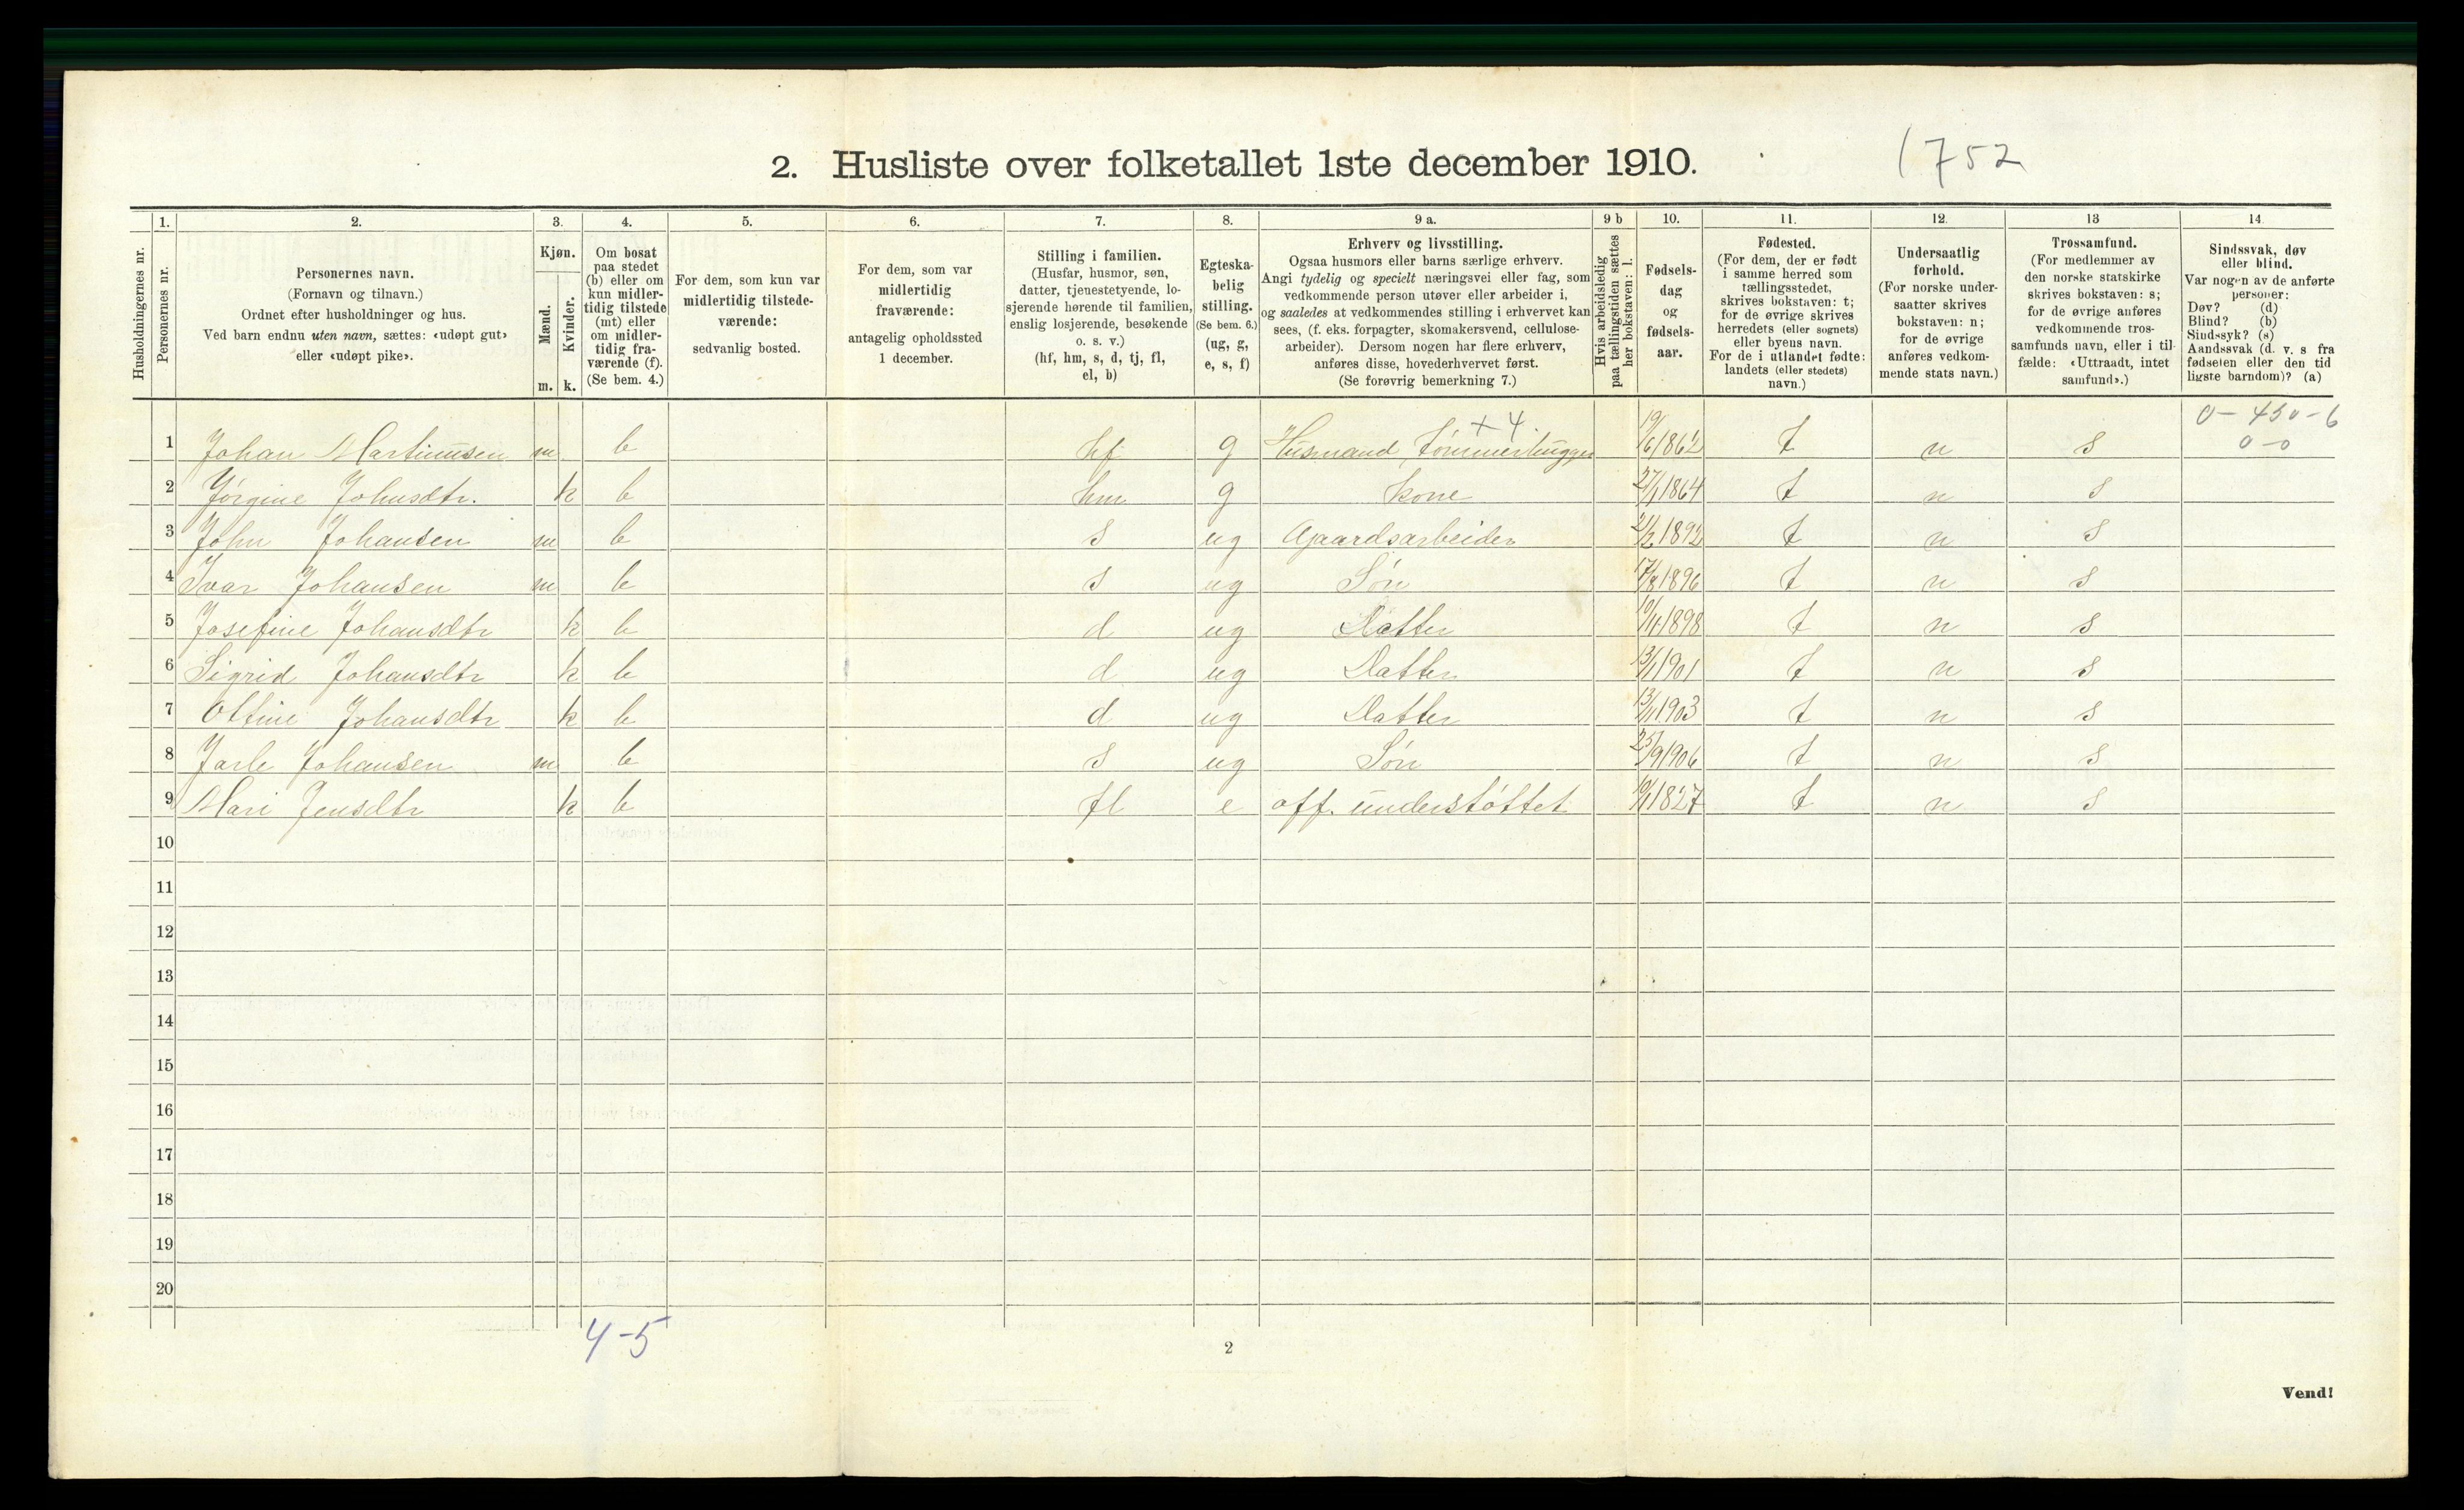 2. Husliste over folketallet 1ste december 1910.
1752
1. 2. 3. 4. 5. 6. 7. 8. 9 a. 9 b 10. 11. 12. 13 14.
Husholdningernes nr.
Personernes nr.
Personernes navn.
(Fornavn og tilnavn.)
Ordnet efter husholdninger og hus.
Ved barn endnu uten navn, sættes: «udøpt gut»
eller «udøpt pike».
Kjøn.
Mænd.
Kvinder.
m. k.
Om bosat
paa stedet
(b) eller om
kun midler-
tidig tilstede
(mt) eller
om midler-
tidig fra-
værende (f).
(Se bem. 4.)
For dem, som kun var
midlertidig tilstede-
værende:
sedvanlig bosted.
For dem, som var
midlertidig
fraværende:
antagelig opholdssted
1 december.
Stilling i familien.
(Husfar, husmor, søn,
datter, tjenestetyende, lo-
sjerende hørende til familien,
enslig losjerende, besøkende
o. s. v.)
(hf, hm, s, d, tj, fl,
el, b)
Egteska-
belig
stilling.
(Se bem. 6.)
(ug, g,
e, s, f)
Erhverv og livsstilling.
Ogsaa husmors eller barns særlige erhverv.
Angi tydelig og specielt næringsvei eller fag, som
vedkommende person utøver eller arbeider i,
og saaledes at vedkommendes stilling i erhvervet kan
sees, (f. eks. forpagter, skomakersvend, cellulose-
arbeider). Dersom nogen har flere erhverv,
anføres disse, hovederhvervet først.
(Se forøvrig bemerkning 7.)
Hvis arbeidsledig
paa tællingstiden sættes
her bokstaven: l.
Fødsels-
dag
og
fødsels-
aar.
Fødested.
(For dem, der er født
i samme herred som
tællingsstedet,
skrives bokstaven: t;
for de øvrige skrives
herredets (eller sognets)
eller byens navn.
For de i utlandet fødte:
landets (eller stedets)
navn.)
Undersaatlig
forhold.
(For norske under-
saatter skrives
bokstaven: n;
for de øvrige
anføres vedkom-
mende stats navn.)
Trossamfund.
(For medlemmer av
den norske statskirke
skrives bokstaven: s;
for de øvrige anføres
vedkommende tros-
samfunds navn, eller i til-
fælde: «Uttraadt, intet
samfund».)
Sindssvak, døv
eller blind.
Var nogen av de anførte
personer:
Døv? (d)
Blind? (b)
Sindssyk? (s)
Aandssvak (d. v. s fra
fødselen eller den tid
ligste barndom)? (a)
+ 4 0 - 450 - 6
0 - 0
1 Johan Martinusen m b hf g Husmand, tømmerhugger 19/6 1862 t n s
2 Jørgine Johnsdtr. k b hm g kone 27/1 1864 t n s
3 John Johansen m b s ug Gaardsarbeider 21/2 1892 t n s
4 Ivar Johansen m b s ug Søn 17/8 1896 t n s
5 Josefine Johansdtr k b d ug Datter 10/11 1898 t n s
6 Sigrid Johansdtr k b d ug Datter 13/1 1901 t n s
7 Ottine Johansdtr k b d ug Datter 13/11 1903 t n s
8 Jarle Johansen m b s ug Søn 25/9 1906 t n s
9 Mari Jensdtr k b fl e off. understøttet 1827 t n s
10
11
12
13
14
15
16
17
18
19
20
4-5
2
Vend!